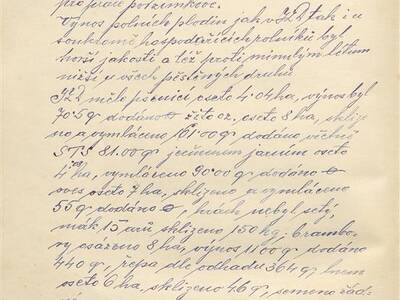 pro práce podzimkové.
Výnos polních plodin jak v JZD tak i u
soukromě hospodařících rolníků byl
horší jakosti a též proti minulým létům
nižší u všech pěstěných druhů
JZD mělo pšenicí oseto 4.04 ha, výnos byl
70.5 q dodáno 0 žito oz. oseto 8 ha, sklize
no a vymláceno 161.00 q dodáno, včetně
STS 81.00 q ječmenem jarním oseto
4 ha, vymláceno 90.00 q dodáno 0
oves oseto 7 ha, sklizeno a vymláceno
55 q dodáno 0, hrách nebyl setý,
mák 15 arů sklizeno 150 kg; brambo-
ry osázeno 8 ha, výnos 1100 q dodáno
440 q, řepa dle odhadu 364 q, lnem
oseto 6 ha, sklizeno 46 q, semeno žád